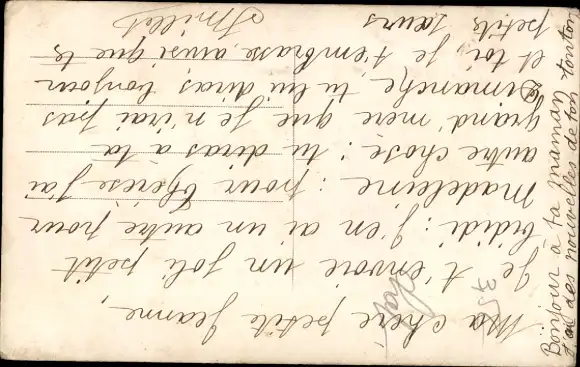 Ma chère petite Jeanne,
Je t'envoie un joli petit
bidi : j'en ai un autre pour
Madeleine : pour Thérèse j'ai
autre chose : tu diras à ta
grand'mère que je n'irai pas
Dimanche tu lui diras bonjour
et toi, je t'embrasse ainsi que tes
petites sœurs
Bonjour à ta maman
j'ai des nouvelles de ton tonton
35